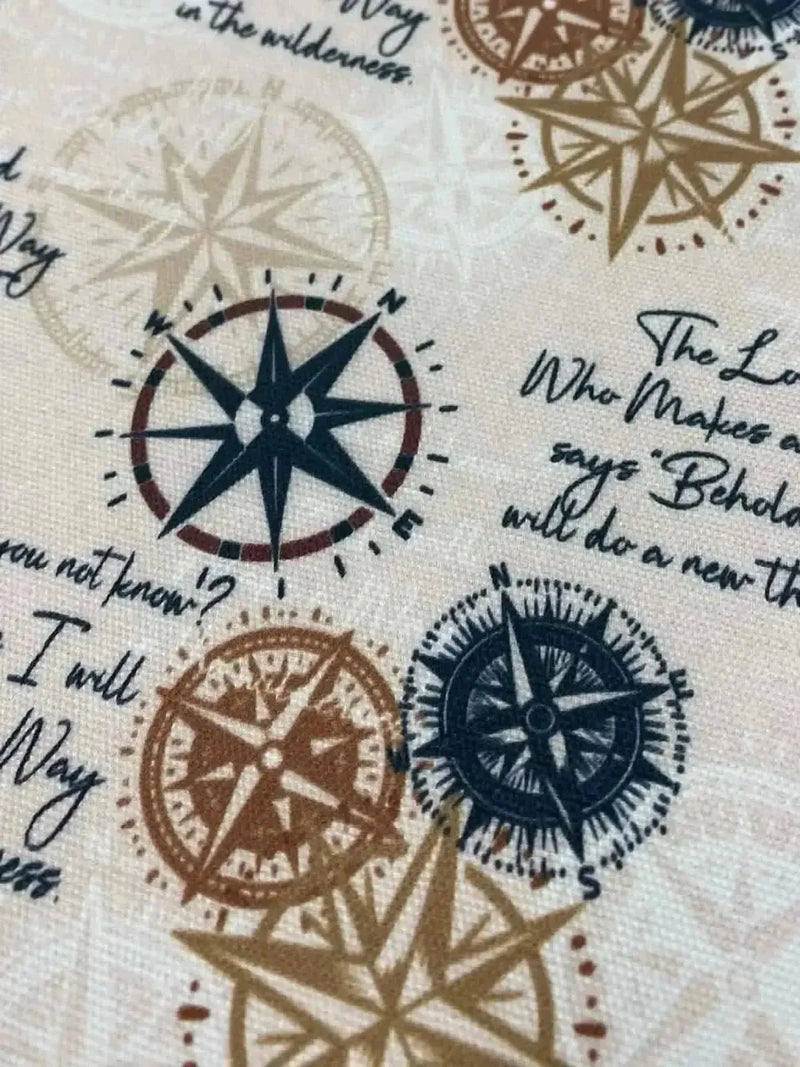 Way
in the wilderness.
N
S
d
Way
E
W
N
E
The Lo
Who Makes a
says "Behold
will do a new th
you not know'?
I will
Way
ness.
N
E
W
S